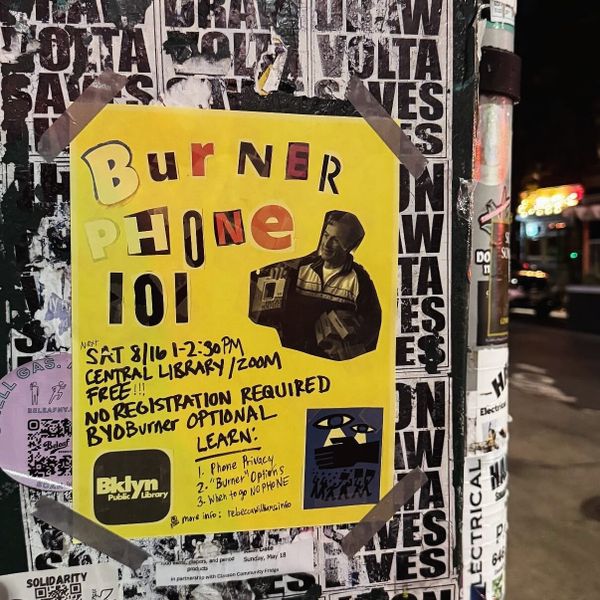 Burner
PHONE
101
NEXT
SAT 8/16 1-2:30PM
CENTRAL LIBRARY / ZOOM
FREE!!!
NO REGISTRATION REQUIRED
BYOBurner OPTIONAL
LEARN:
1. Phone Privacy
2. "Burner" Options
3. When to go NO PHONE
more info: rebeccawilliams.info
Bklyn
Public Library
DRAW
VOLTA
SAVES
SAVES
Sunday, May 18
products
in partnership with Clinton Community Fridge
SOLIDARITY
Electrical
ELECTRICAL